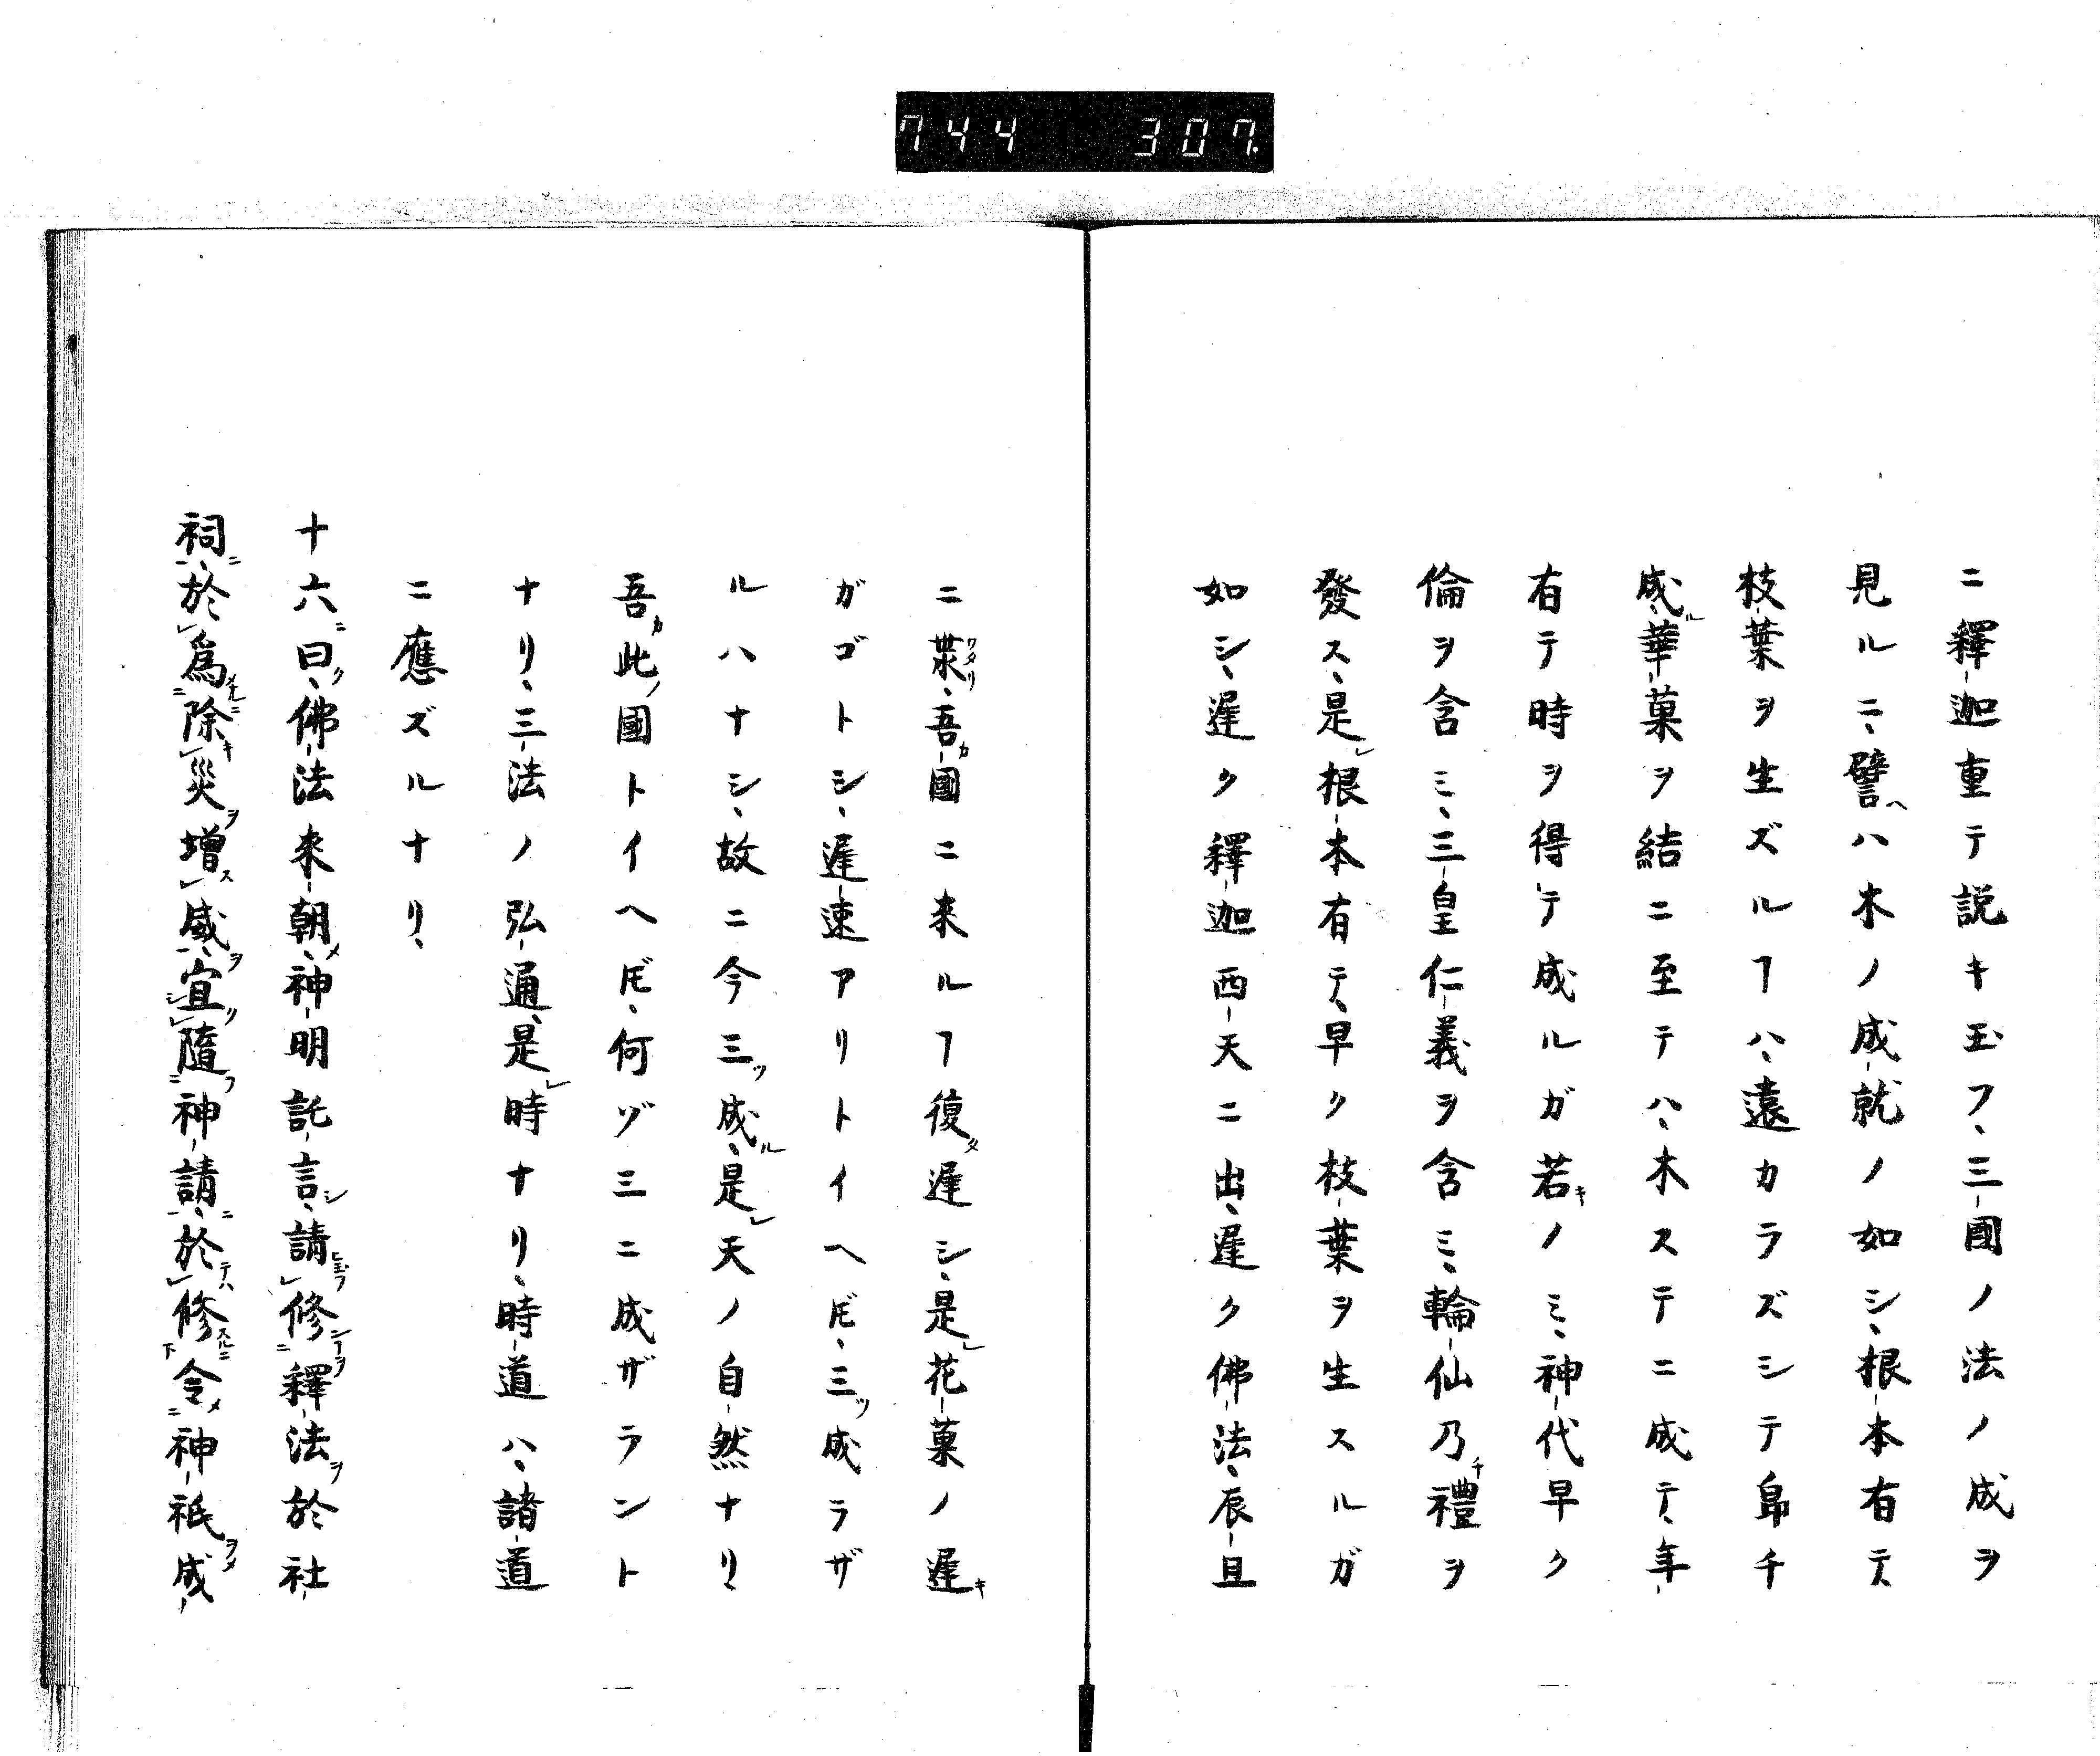 744 307.
ニ釋迦重テ説キ玉フ、三國ノ法ノ成ヲ
見ルニ、譬ヘハ木ノ成就ノ如シ、根本有テ、
枝葉ヲ生ズルヿハ、遠カラズシテ皍チ
成ル、華菓ヲ結ニ至テハ、木ステニ成テ、年
有テ時ヲ得テ成ルガ若キノミ、神代早ク
倫ヲ含ミ、三皇仁義ヲ含ミ、輪仙乃チ禮ヲ
發ス、是レ根本有テ、早ク枝葉ヲ生スルガ
如シ、遲ク釋迦西天ニ出、遲ク佛法、辰旦
ニ、吾カ國ニ来ルヿ復タ遲シ、是レ花菓ノ遲キ
ガゴトシ、遲速アリトイヘ𪜈、三ツ成ラザ
ルハナシ、故ニ今三ツ成ル、是レ天ノ自然ナリ、
吾カ此ノ國トイヘ𪜈、何ゾ三ニ成ザラント
ナリ、三法ノ弘通、是レ時ナリ、時道ハ、諸道
ニ應ズルナリ、
十六ニ曰ク、佛法来朝メ、神明託言シ、請玉フレ修シヿヲ二釋法ヲ於社
祠ニ一、於レ爲メルニ二除キレ災ヲ増スレ威ヲ一、宜シクレ隨フ二神請ニ一、於テハレ修スルニ下令メ二神祇ヲメ成